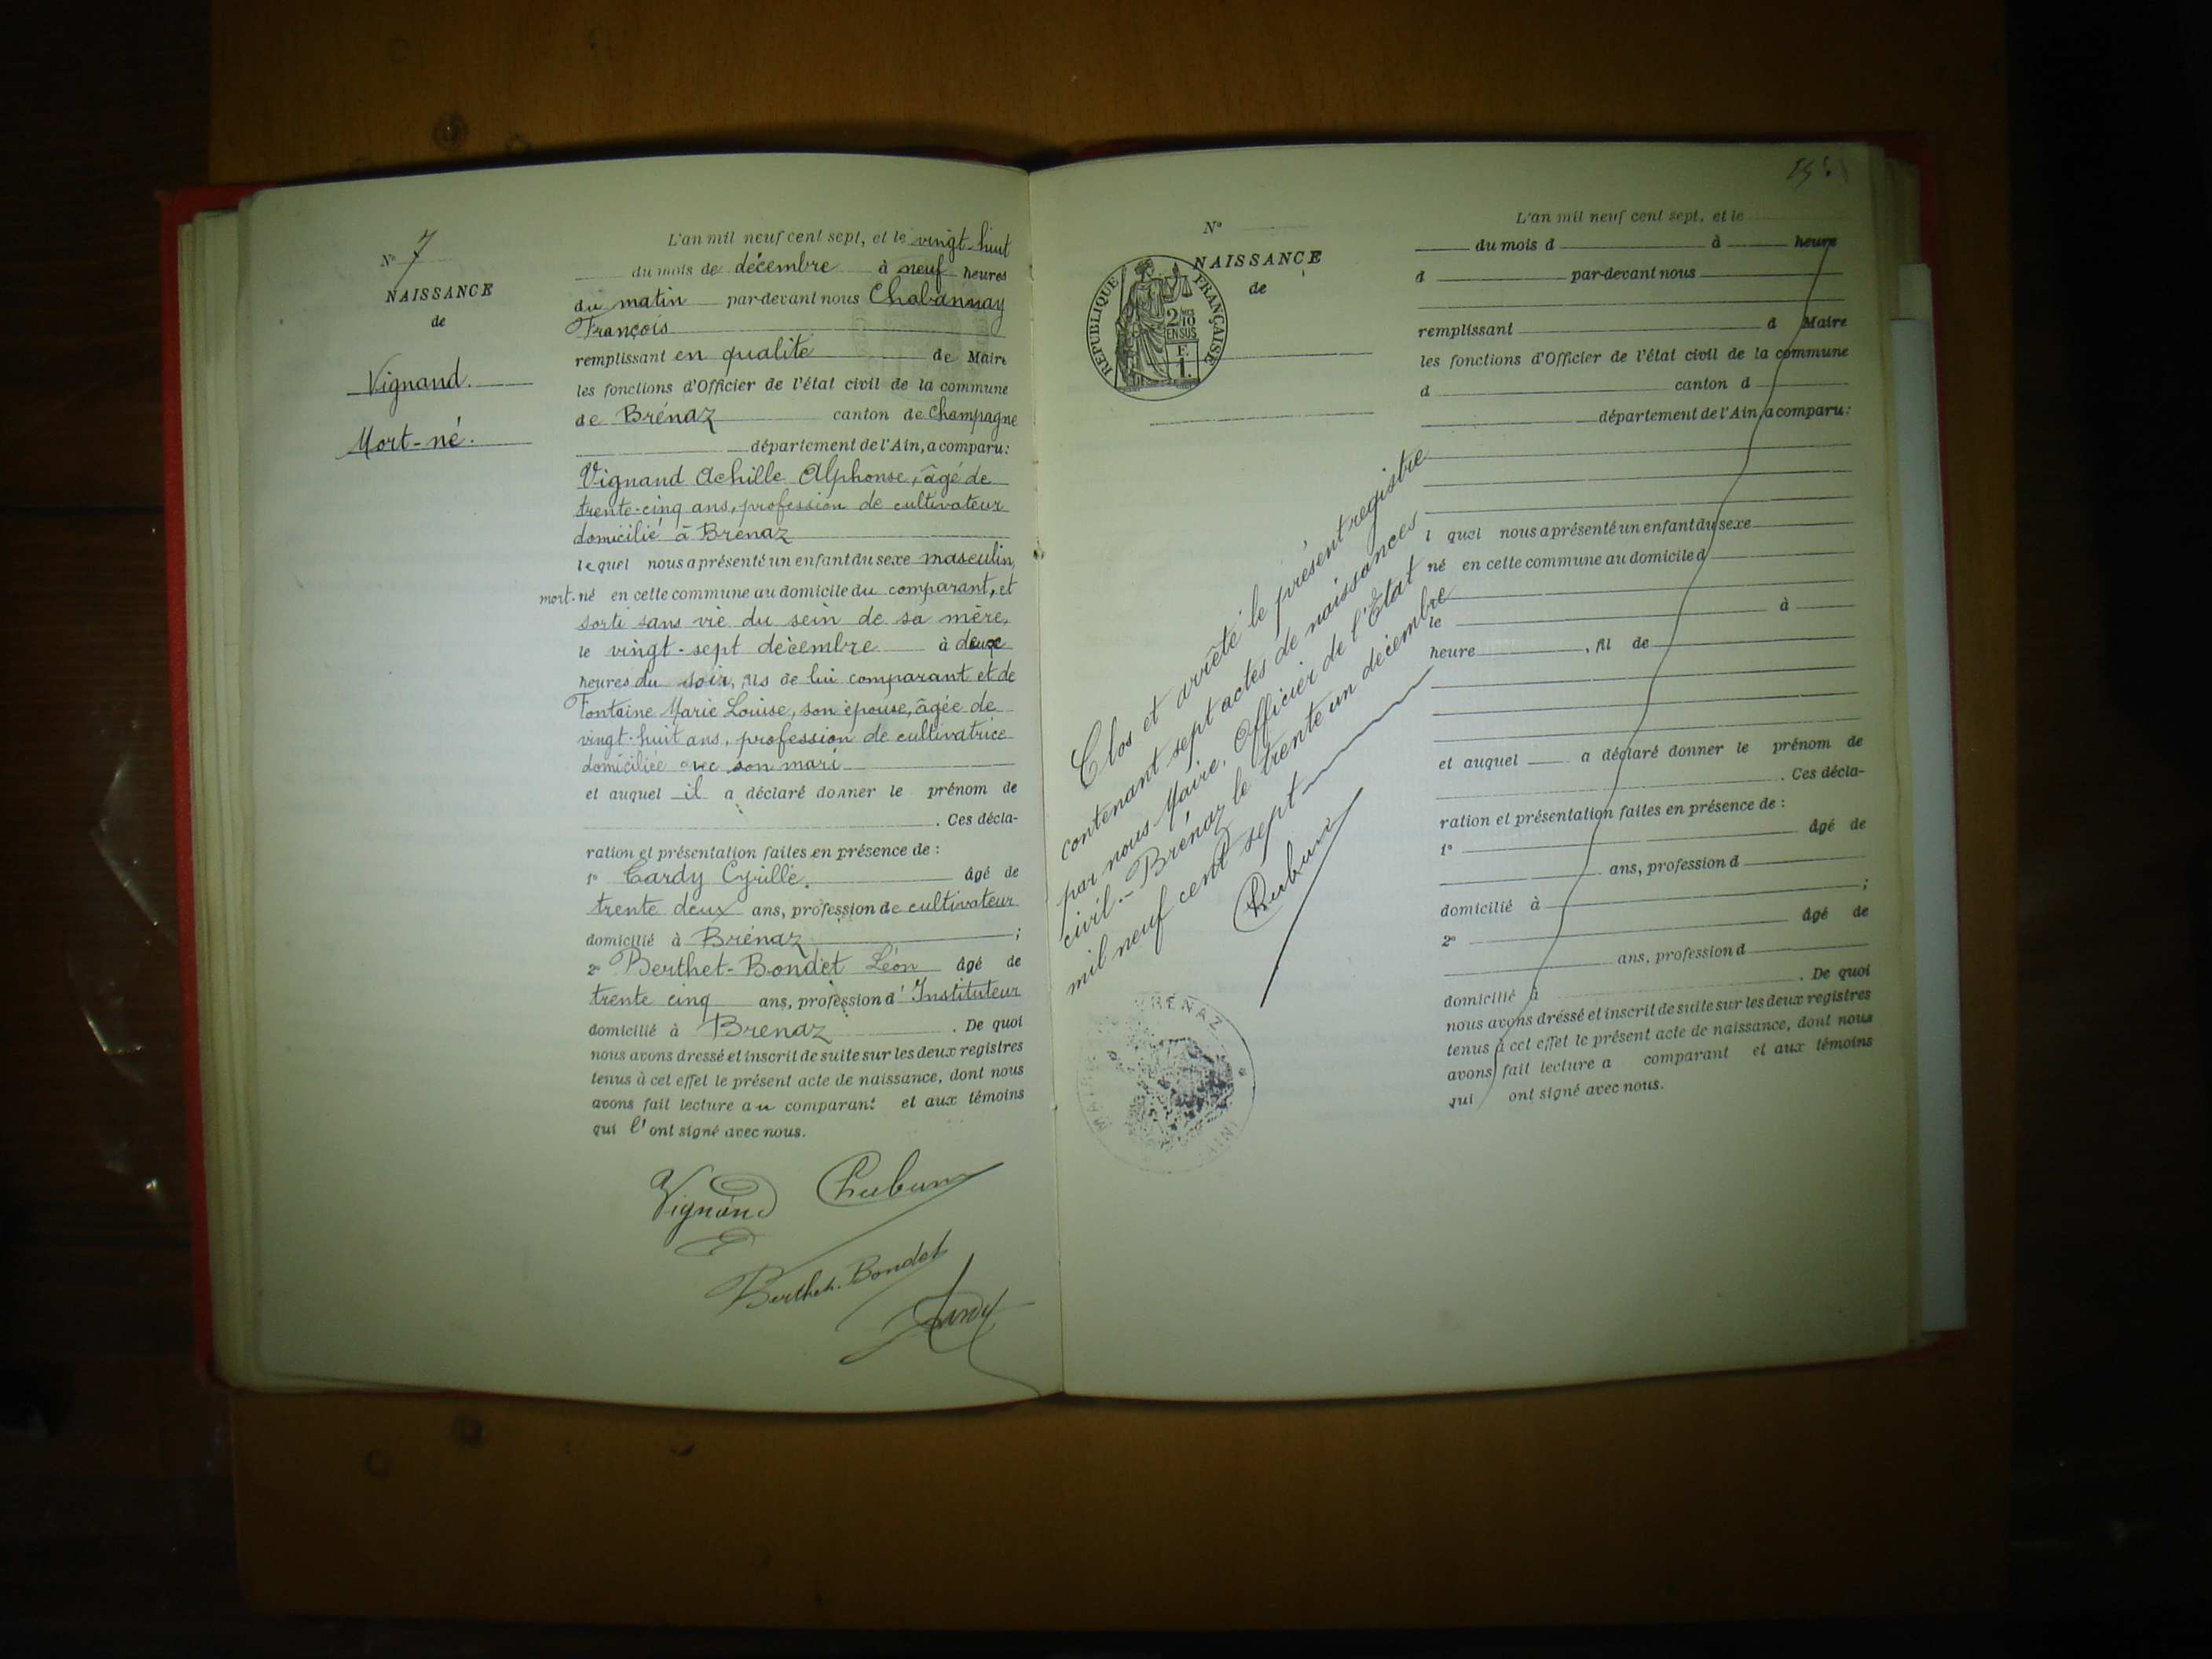 N° 7
NAISSANCE
de
Vignand.
Mort-né.
L'an mil neuf cent sept, et le vingt-huit
du mois de décembre à neuf heures
du matin par-devant nous Chabannay
François
remplissant en qualité de Maire
les fonctions d'Officier de l'état civil de la commune
de Brénaz canton de Champagne
département de l'Ain, a comparu:
Vignand Achille Alphonse, âgé de
trente-cinq ans, profession de cultivateur
domicilié à Brénaz
lequel nous a présenté un enfant du sexe masculin,
mort-né en cette commune au domicile du comparant, et
sorti sans vie du sein de sa mère,
le vingt-sept décembre à deux
heures du soir, fils de lui comparant et de
Fontaine Marie Louise, son épouse, âgée de
vingt-huit ans, profession de cultivatrice
domiciliée avec son mari
et auquel il a déclaré donner le prénom de
. Ces décla-
ration et présentation faites en présence de :
1° Tardy Cyrille, âgé de
trente deux ans, profession de cultivateur
domicilié à Brénaz ;
2° Berthet-Bondet Léon âgé de
trente cinq ans, profession d'Instituteur
domicilié à Brénaz . De quoi
nous avons dressé et inscrit de suite sur les deux registres
tenus à cet effet le présent acte de naissance, dont nous
avons fait lecture au comparant et aux témoins
qui l'ont signé avec nous.
Vignand
Berthet-Bondet
N°
NAISSANCE
de
RÉPUBLIQUE FRANÇAISE
2/10
EN SUS
F.
1.
Clos et arrêté le présent registre
contenant sept actes de naissances
par nous Maire, Officier de l'Etat
civil.- Brénaz le trente un décembre
mil neuf cent sept
BRENAZ
L'an mil neuf cent sept, et le
du mois d à heure
d par-devant nous
remplissant d Maire
les fonctions d'Officier de l'état civil de la commune
d canton d
département de l'Ain, a comparu:
l quel nous a présenté un enfant du sexe
né en cette commune au domicile d
le à
heure , fil de
et auquel a déclaré donner le prénom de
. Ces décla-
ration et présentation faites en présence de :
1° âgé de
ans, profession d
domicilié à ;
2° âgé de
ans, profession d
domicilié à . De quoi
nous avons dressé et inscrit de suite sur les deux registres
tenus à cet effet le présent acte de naissance, dont nous
avons fait lecture a comparant et aux témoins
qui ont signé avec nous.